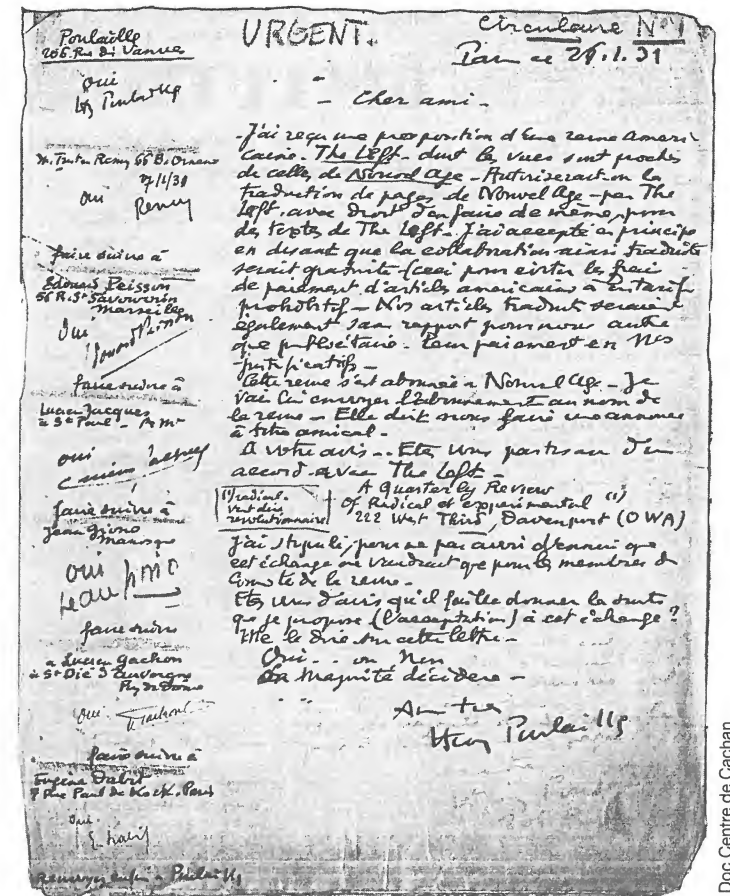 URGENT.
Circulaire N° 1
Paris ce 26.1.31
Poulaille
266 Rue de Vanves
oui
Hy Poulaille
M. Tristan Remy 56 B. Ornano
7/1/31
oui Remy
faire suivre à
Edouard Peisson
56 R. St Savournin
Marseille
Oui
Edouard Peisson
faire suivre à
Lucien Jacques
à St Paul - A Mmes
oui
Lucien Jacques
faire suivre à
Jean Giono
Manosque
oui
Jean Giono
faire suivre
à Lucien Gachon
à St Dié d'Auvergne
Puy de Dome
oui Gachon
faire suivre à
Eugène Dabit
7 Rue Paul de Kock. Paris
oui
E. Dabit
Renvoyez enfin à Poulaille
- Cher ami -
- J'ai reçu une proposition d'une revue Ameri
caine. The Left - dont les vues sont proches
de celles de Nouvel Age - Autoriserait-on la
traduction de pages de Nouvel Age - par The
Left, avec droit d'en faire de même, pour
des textes de The Left. J'ai accepté en principe
en disant que la collaboration ainsi traduite
serait gratuite (ceci pour éviter les frais
de paiement d'articles americains à un tarif
prohibitif - Nos articles traduits seraient
également sans rapport pour nous autre
que publicitaire. Leur paiement en Nos
justificatifs -
Cette revue s'est abonnée à Nouvel Age - Je
vais lui envoyer l'abonnement au nom de
la revue - Elle doit nous faire une annonce
à titre amical.
A votre avis - Etes vous partisan d'un
accord avec The Left -
A Quarterly Review
Of Radical et experimental (1)
222 West Third, Davenport (OWA)
(1) radical.
veut dire
revolutionnaire
J'ai stipulé, pour ne pas avoir d'ennui que
cet échange ne vaudrait que pour les membres du
Comité de la revue.
Etes vous d'avis qu'il faille donner la suite
que je propose (l'acceptation) à cet échange ?
Me le dire sur cette lettre -
Oui - ou Non
La Majorité décidera -
Amitiés
Henry Poulaille
Doc Centre de Cachan